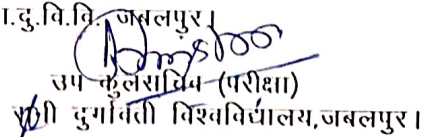 ा.दु.वि.वि. जबलपुर।
उप कुलसचिव (परीक्षा)
रानी दुर्गावती विश्वविद्यालय,जबलपुर।